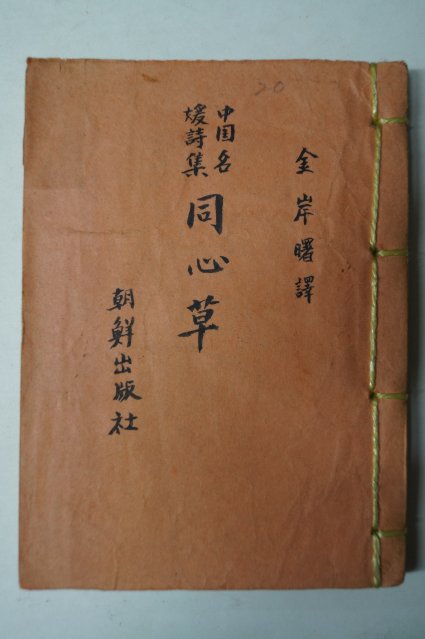 20
金岸曙譯
中国名
媛詩集
同心草
朝鮮出版社